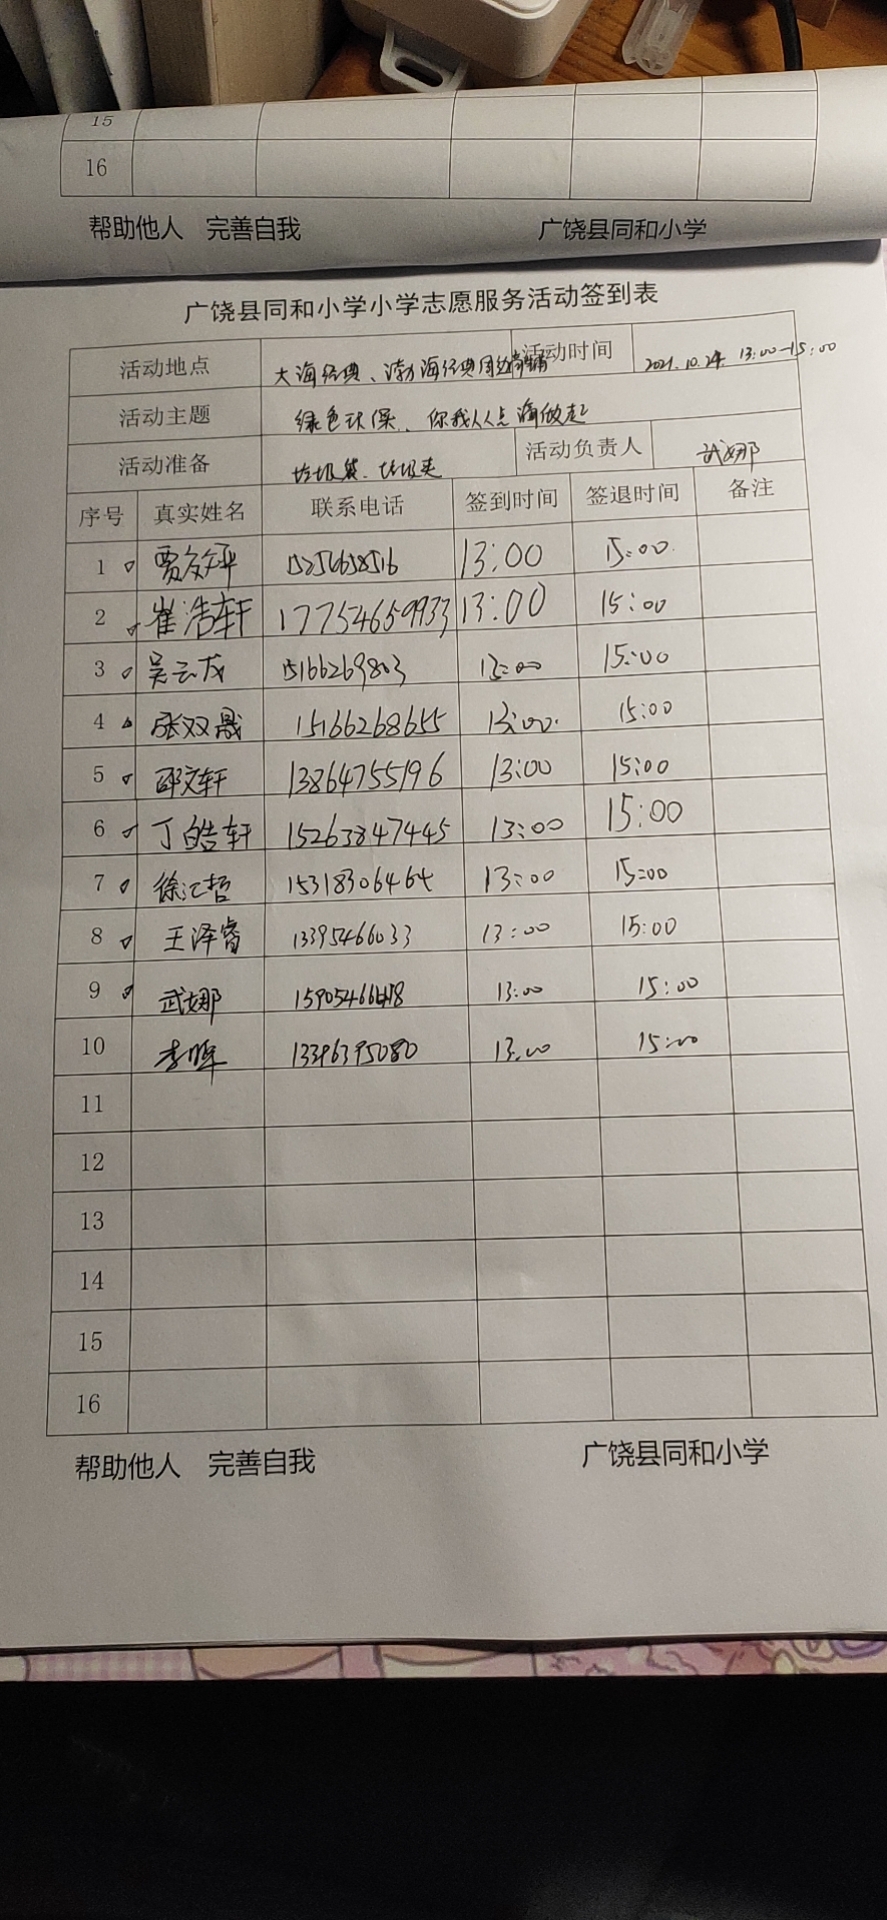 15
16
帮助他人 完善自我 广饶县同和小学
广饶县同和小学小学志愿服务活动签到表
活动地点 大海经典、渤海经典周边商铺 活动时间 2021.10.24 13:00-15:00
活动主题 绿色环保、你我人人点滴做起
活动准备 垃圾袋、垃圾夹 活动负责人 武娜
序号 真实姓名 联系电话 签到时间 签退时间 备注
1 13:00 15:00
2 崔浩轩 17754659933 13:00 15:00
3 吴云龙 15166269803 13:00 15:00
4 张双晟 15166268655 13:00 15:00
5 邵文轩 13864755196 13:00 15:00
6 丁皓轩 15263847445 13:00 15:00
7 徐汇哲 15318306464 13:00 15:00
8 王泽睿 13395466033 13:00 15:00
9 武娜 13:00 15:00
10 李晖 13396395080 13:00 15:00
11
12
13
14
15
16
帮助他人 完善自我 广饶县同和小学